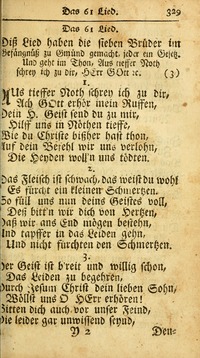 Das 61 Lied. 329
Das 61 Lied.
Diß Lied haben die sieben Brüder im
Gefängnüß zu Gmünd gemacht, jeder ein Gesetz.
Und geht im Thon, Aus tieffer Noth
schrey ich zu dir, HErr GOtt ꝛc. (3)
1.
AUs tieffer Noth schrey ich zu dir,
Ach GOtt erhör mein Ruffen,
Dein H. Geist send du zu mir,
Hilff uns in Nöthen tieffe,
Wie du Christe bißher hast thon,
Auf dein Befehl wir uns verlohn,
Die Heyden woll'n uns tödten.
2.
Das Fleisch ist schwach, das weist du wohl
Es fürcht ein kleinen Schmertzen,
So füll uns nun deins Geistes voll,
Deß bitt'n wir dich von Hertzen,
Daß wir ans End mögen bestehn,
Und tapffer in das Leiden gehn,
Und nicht fürchten den Schmertzen.
3.
Der Geist ist b'reit und willig schon,
Das Leiden zu begehren,
Durch Jesum Christ dein lieben Sohn,
Wöllst uns O HErr erhören!
Bitten dich auch vor unser Feind,
Die leider gar unwissend seynd,
Y 2 Den-